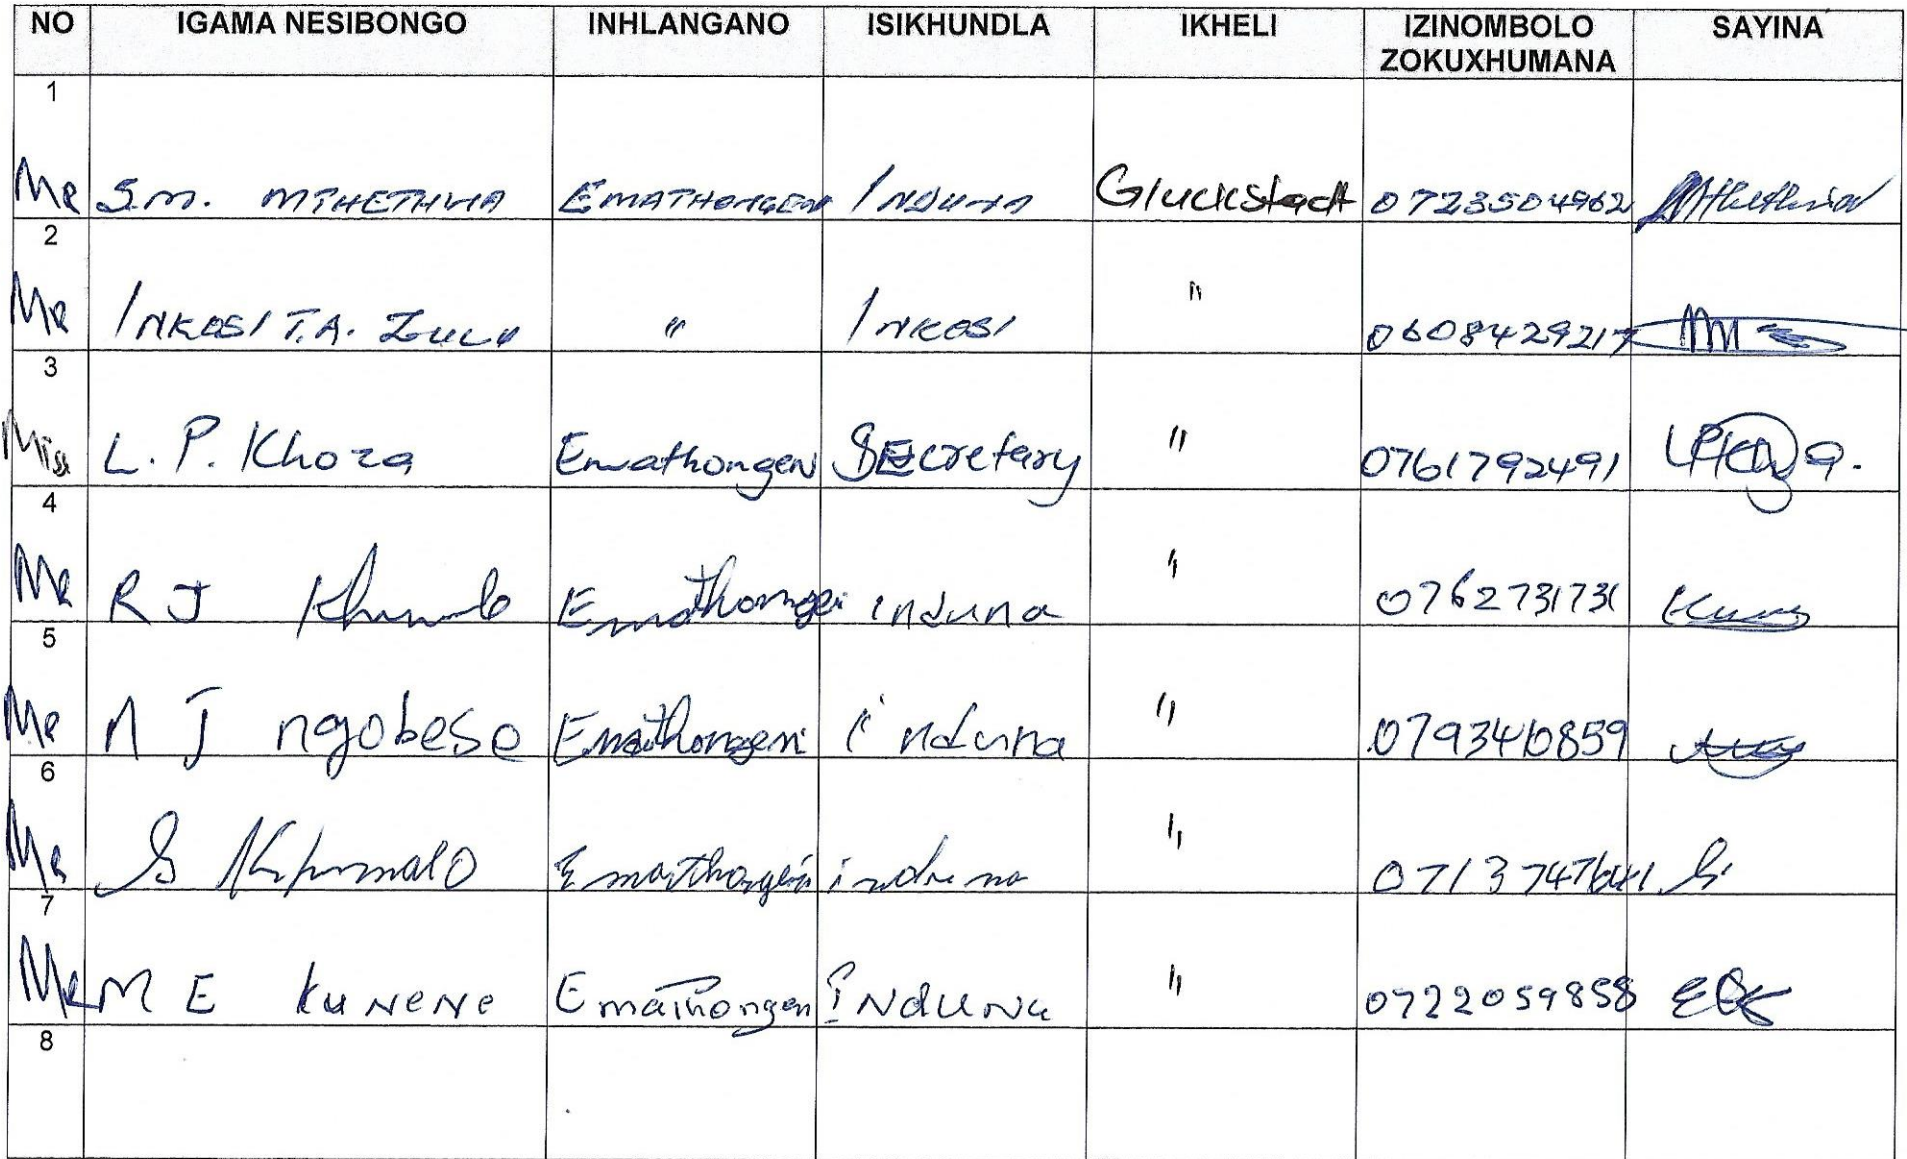 NO IGAMA NESIBONGO INHLANGANO ISIKHUNDLA IKHELI IZINOMBOLO ZOKUXHUMANA SAYINA
1
Mr S.M. MTHETHWA EMATHONGEN INDUNA Gluckstadt 0723504962 Mthethwa
2
Mr INKOSI T.A. ZULU " INKOSI " 0608429217
3
Miss L. P. Khoza Emathongen SEcretary " 0761792491 LPKhoza.
4
Mr R J Khumalo Emathongei induna " 0762731731
5
Mr N J ngobese Emathongeni induna " 0793410859
6
Mr S Khumalo Emathongeni induna " 0713747641 S.
7
Mr M E kuNeNe Emathongen iNduNa " 0722059858
8